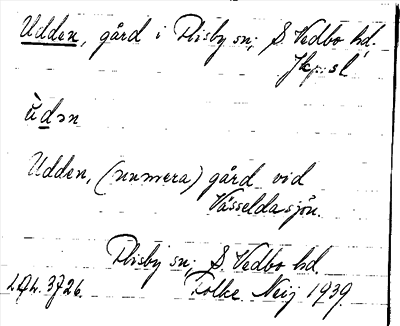 Udden, gård i Flisby sn; S Vedbo hd.
Jkp:s l
ùdən
Udden, (numera) gård vid
Vässeldasjön.
Flisby sn; S. Vedbo hd.
Folke Neij 1939.